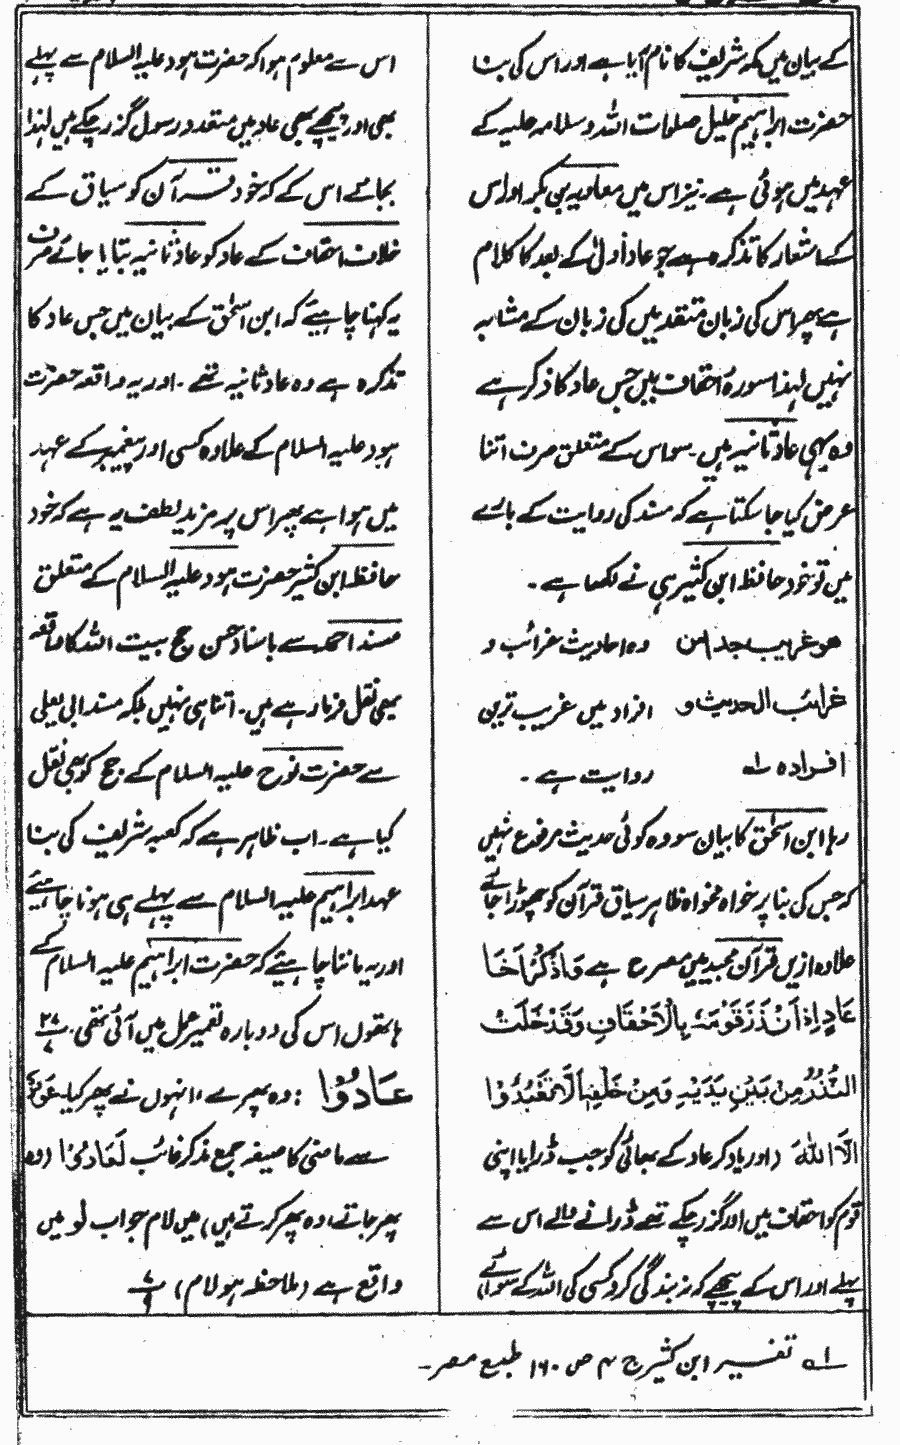 کے بیان میں مکہ شریف کا نام آیا ہے اور اس کی بنا
حضرت ابراہیم خلیل صلوات اللہ وسلامہ علیہ کے
عہد میں ہوئی ہے۔ نیز اس میں معاویہ بن بکر اور اس
کے اشعار کا تذکرہ ہے جو عاد اُولیٰ کے بعد کا کلام
ہے پھر اس کی زبان متقدمین کی زبان کے مشابہ
نہیں لہذا سورہ احقاف میں جس عاد کا ذکر ہے
وہ یہی عاد ثانیہ ہیں۔ سو اس کے متعلق صرف اتنا
عرض کیا جا سکتا ہے کہ مسند کی روایت کے بارے
میں تو خود حافظ ابن کثیر ہی نے لکھا ہے۔
ھو غریب جدا من وہ احادیث غرائب و
غرائب الحدیث و افراد میں غریب ترین
افرادہ لہ روایت ہے۔
رہا ابن اسحٰق کا بیان سو وہ کوئی حدیث مرفوع نہیں
کہ جس کی بنا پر خواہ مخواہ ظاہر سیاق قرآن کو چھوڑا جائے
علاوہ ازیں قرآن مجید میں مصرح ہے وَاذْكُرْ اَخَا
عَادٍ اِذْ اَنْذَرَ قَوْمَهٗ بِالْاَحْقَافِ وَقَدْ خَلَتِ
النُّذُرُ مِنْ بَيْنِ يَدَيْهِ وَمِنْ خَلْفِهٖ اَلَّا تَعْبُدُوْا
اِلَّا اللّٰهَ (اور یاد کر عاد کے بھائی کو جب ڈرایا اپنی
قوم کو احقاف میں اور گزر چکے تھے ڈرانے والے اس سے
پہلے اور اس کے پیچھے کہ نہ بندگی کرو کسی کی اللہ کے سوائے)
اس سے معلوم ہوا کہ حضرت ہود علیہ السلام سے پہلے
بھی اور پیچھے بھی عاد میں متعدد رسول گزر چکے ہیں لہٰذا
بجائے اس کے کہ خود قرآن کو سیاق کے
خلاف احقاف کے عاد کو عاد ثانیہ بتایا جائے صرف
یہ کہنا چاہیئے کہ ابن اسحٰق کے بیان میں جس عاد کا
تذکرہ ہے وہ عاد ثانیہ تھے۔ اور یہ واقعہ حضرت
ہود علیہ السلام کے علاوہ کسی اور پیغمبر کے عہد
میں ہوا ہے پھر اس پر مزید لطف یہ ہے کہ خود
حافظ ابن کثیر حضرت ہود علیہ السلام کے متعلق
مسند احمد سے باسناد حسن حج بیت اللہ کا واقعہ
بھی نقل فرما رہے ہیں۔ اتنا ہی نہیں بلکہ مسند ابی یعلی
سے حضرت نوح علیہ السلام کے حج کو بھی نقل
کیا ہے۔ اب ظاہر ہے کہ کعبہ شریف کی بنا
عہد ابراہیم علیہ السلام سے پہلے ہی ہونا چاہیئے
اور یہ ماننا چاہیئے کہ حضرت ابراہیم علیہ السلام کے
ہاتھوں اس کی دوبارہ تعمیر عمل میں آئی تھی۔ ۲۷
عَادُوْا : وہ پھرے، انہوں نے پھر کیا۔ عَوْدٌ
سے ماضی کا صیغہ جمع مذکر غائب لَعَادُوْا (وہ
پھر جاتے، وہ پھر کرتے ہیں) میں لام جواب لَو میں
واقع ہے (ملاحظہ ہو لام)
لہ تفسیر ابن کثیر ج ۴ ص ۱۶۰ طبع مصر۔